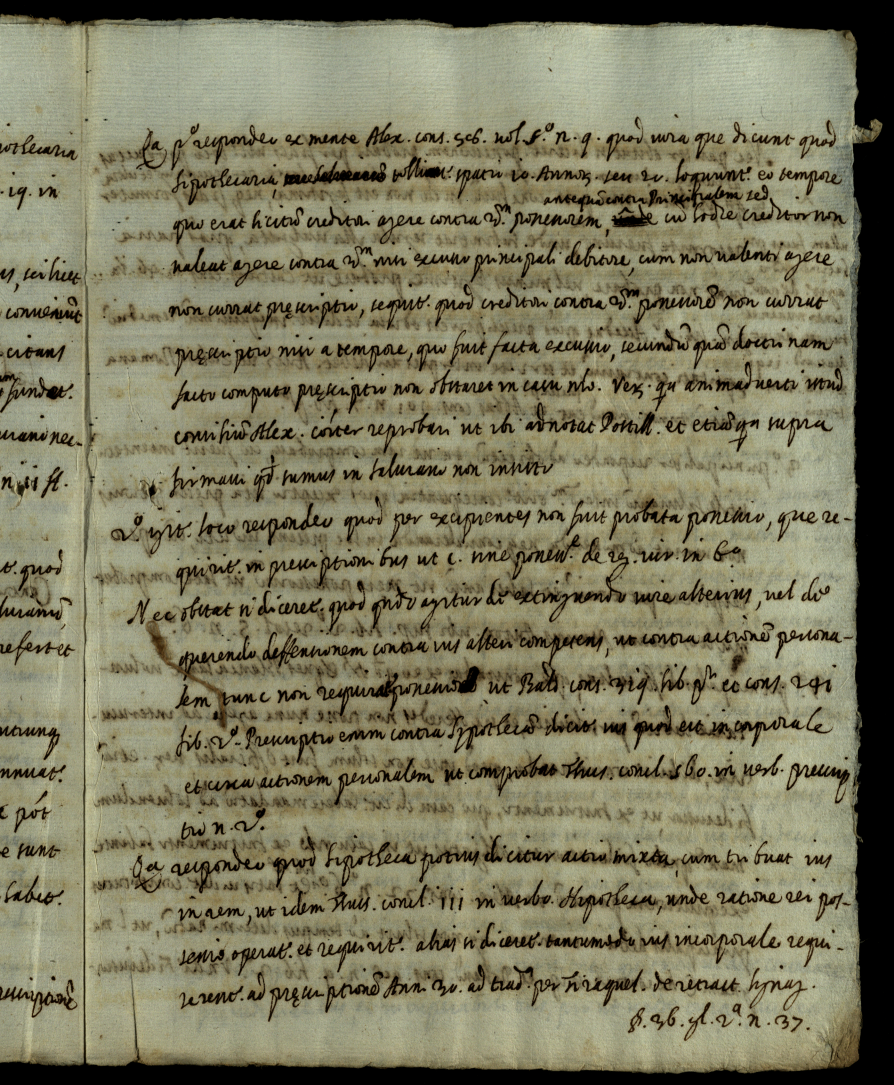 othecaria
19. in
us, scilicet
convenirēt
citans
non
fundat.
n ii ff.
t. quod
refert et
nnuat.
e sunt
habet.
Qa pº respondeo ex mente Alex. cons. vol. 5º n. 9. quod iura que dicunt quod
hipothecaria, spatio 10. Annoꝝ. seu 20. loquunt. eo tempore
antequā contra Principalem sed
quo erat licitū creditori agere contra 3.m possessorem, cū hodie creditor non
valeat agere contra 3.m nisi excusso principali debitore, cum non valenti agere
non currat pręscriptio, sequit. quod creditori contra 3.m possessorē non currat
pręscriptio nisi a tempore, quo fuit facta excussio, secundū quā doctrinam
facto computo pręscriptio non obstaret in casu nro. Veꝝ. qa animadverti istud
consiliū Alex. cōiter reprobari ut ibi adnotat Postill. et etiā qa supra
firmavi qd sumus in salviano non insisto
2º igit. loco respondeo quod per excipientes non fuit probata possessio, que re-
quirit. in prescriptionibus ut c. sine possess.e de reg. iur. in 6º
Nec obstat si diceret. quod qndo agitur de extinguendo iure alterius, vel de
querendo deffensionem contra ius alteri competens, ut contra actionē persona-
lem tunc non requirat. possessio ut Bald. cons. 319. lib. pº et cons. 241
lib. 2º. Prescriptio enim contra hypothecā dicit. ius quod est incorporale
et circa actionem personalem ut comprobat Thus. concl. 560. in verb. prescrip
tio n. 2º.
Qa respondeo quod hipotheca potius dicitur actio mixta, cum tribuat ius
in rem, ut idem Thus. concl. 111 in verbo. Hipotheca, unde ratione rei pos-
sessio operat. et requirit. alias si diceret. tantumodo ius incorporale requi-
rerent. ad pręscriptionē Anni 30. ad trad. per Tiraquel. de retract. lignag.
§. 36. gl. 2ª. n. 37.